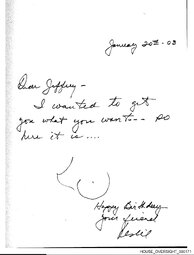 January 20th - 03
Dear Jeffrey -
I wanted to get
you what you want -- so
here it is ....
Happy Birthday
Your friend
Leslie
HOUSE_OVERSIGHT_330171